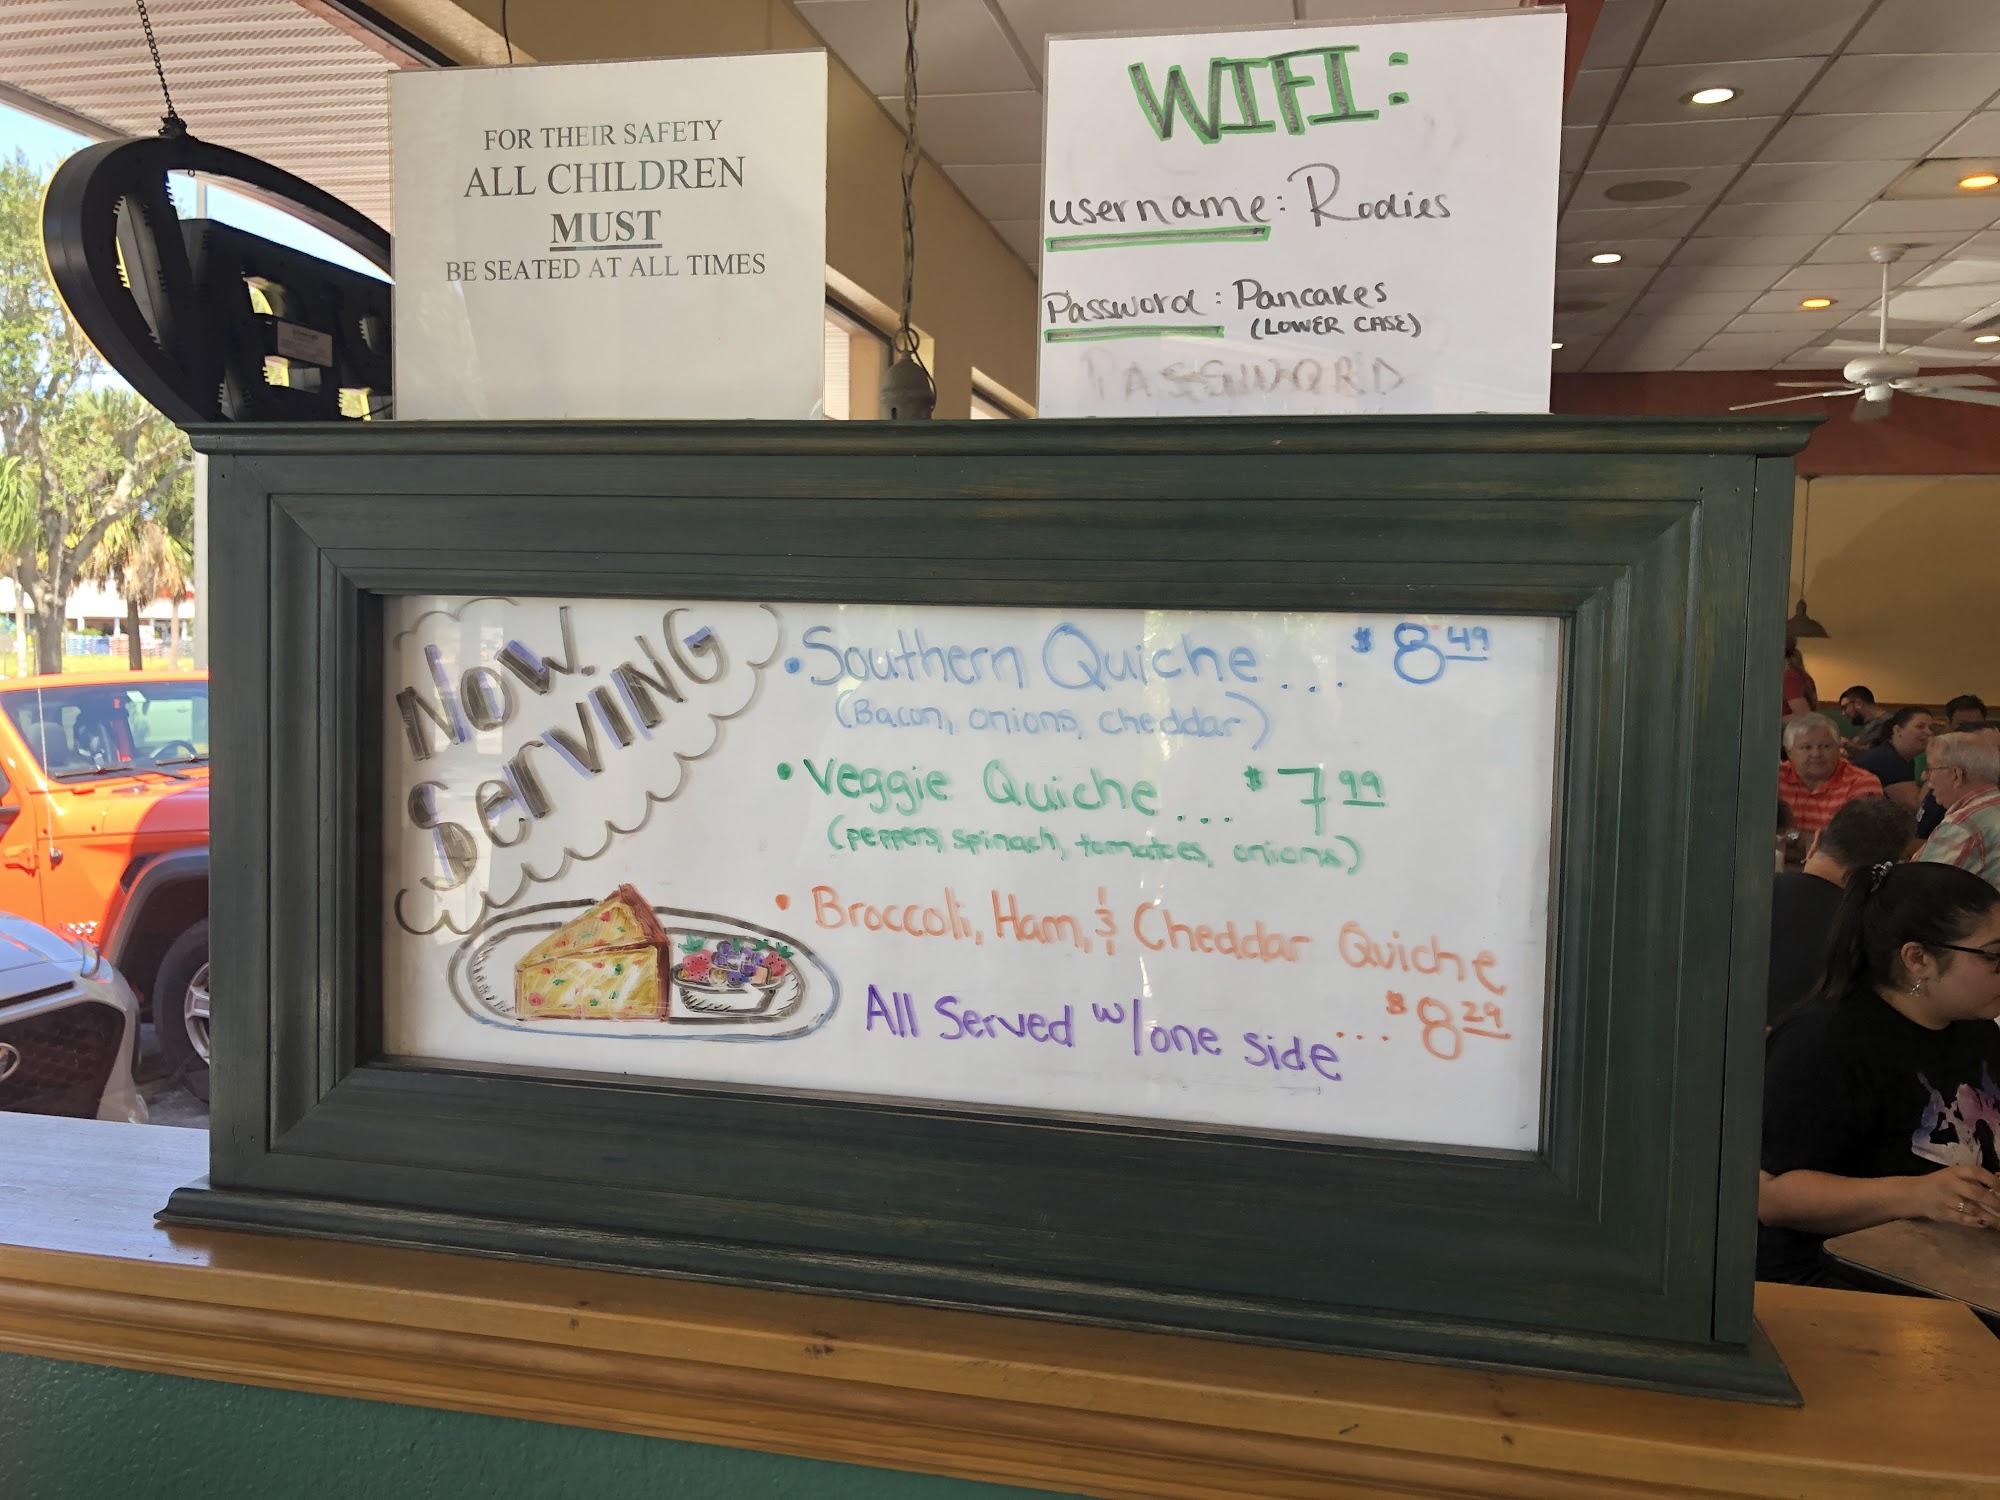 FOR THEIR SAFETY
ALL CHILDREN
MUST
BE SEATED AT ALL TIMES
WIFI:
username: Rodies
Password: Pancakes
(LOWER CASE)
PASSWORD
NOW
Serving
• Southern Quiche... $8.49
(Bacon, onions, cheddar)
• Veggie Quiche... $7.99
(peppers, spinach, tomatoes, onions)
• Broccoli, Ham, & Cheddar Quiche
... $8.29
All Served w/one side